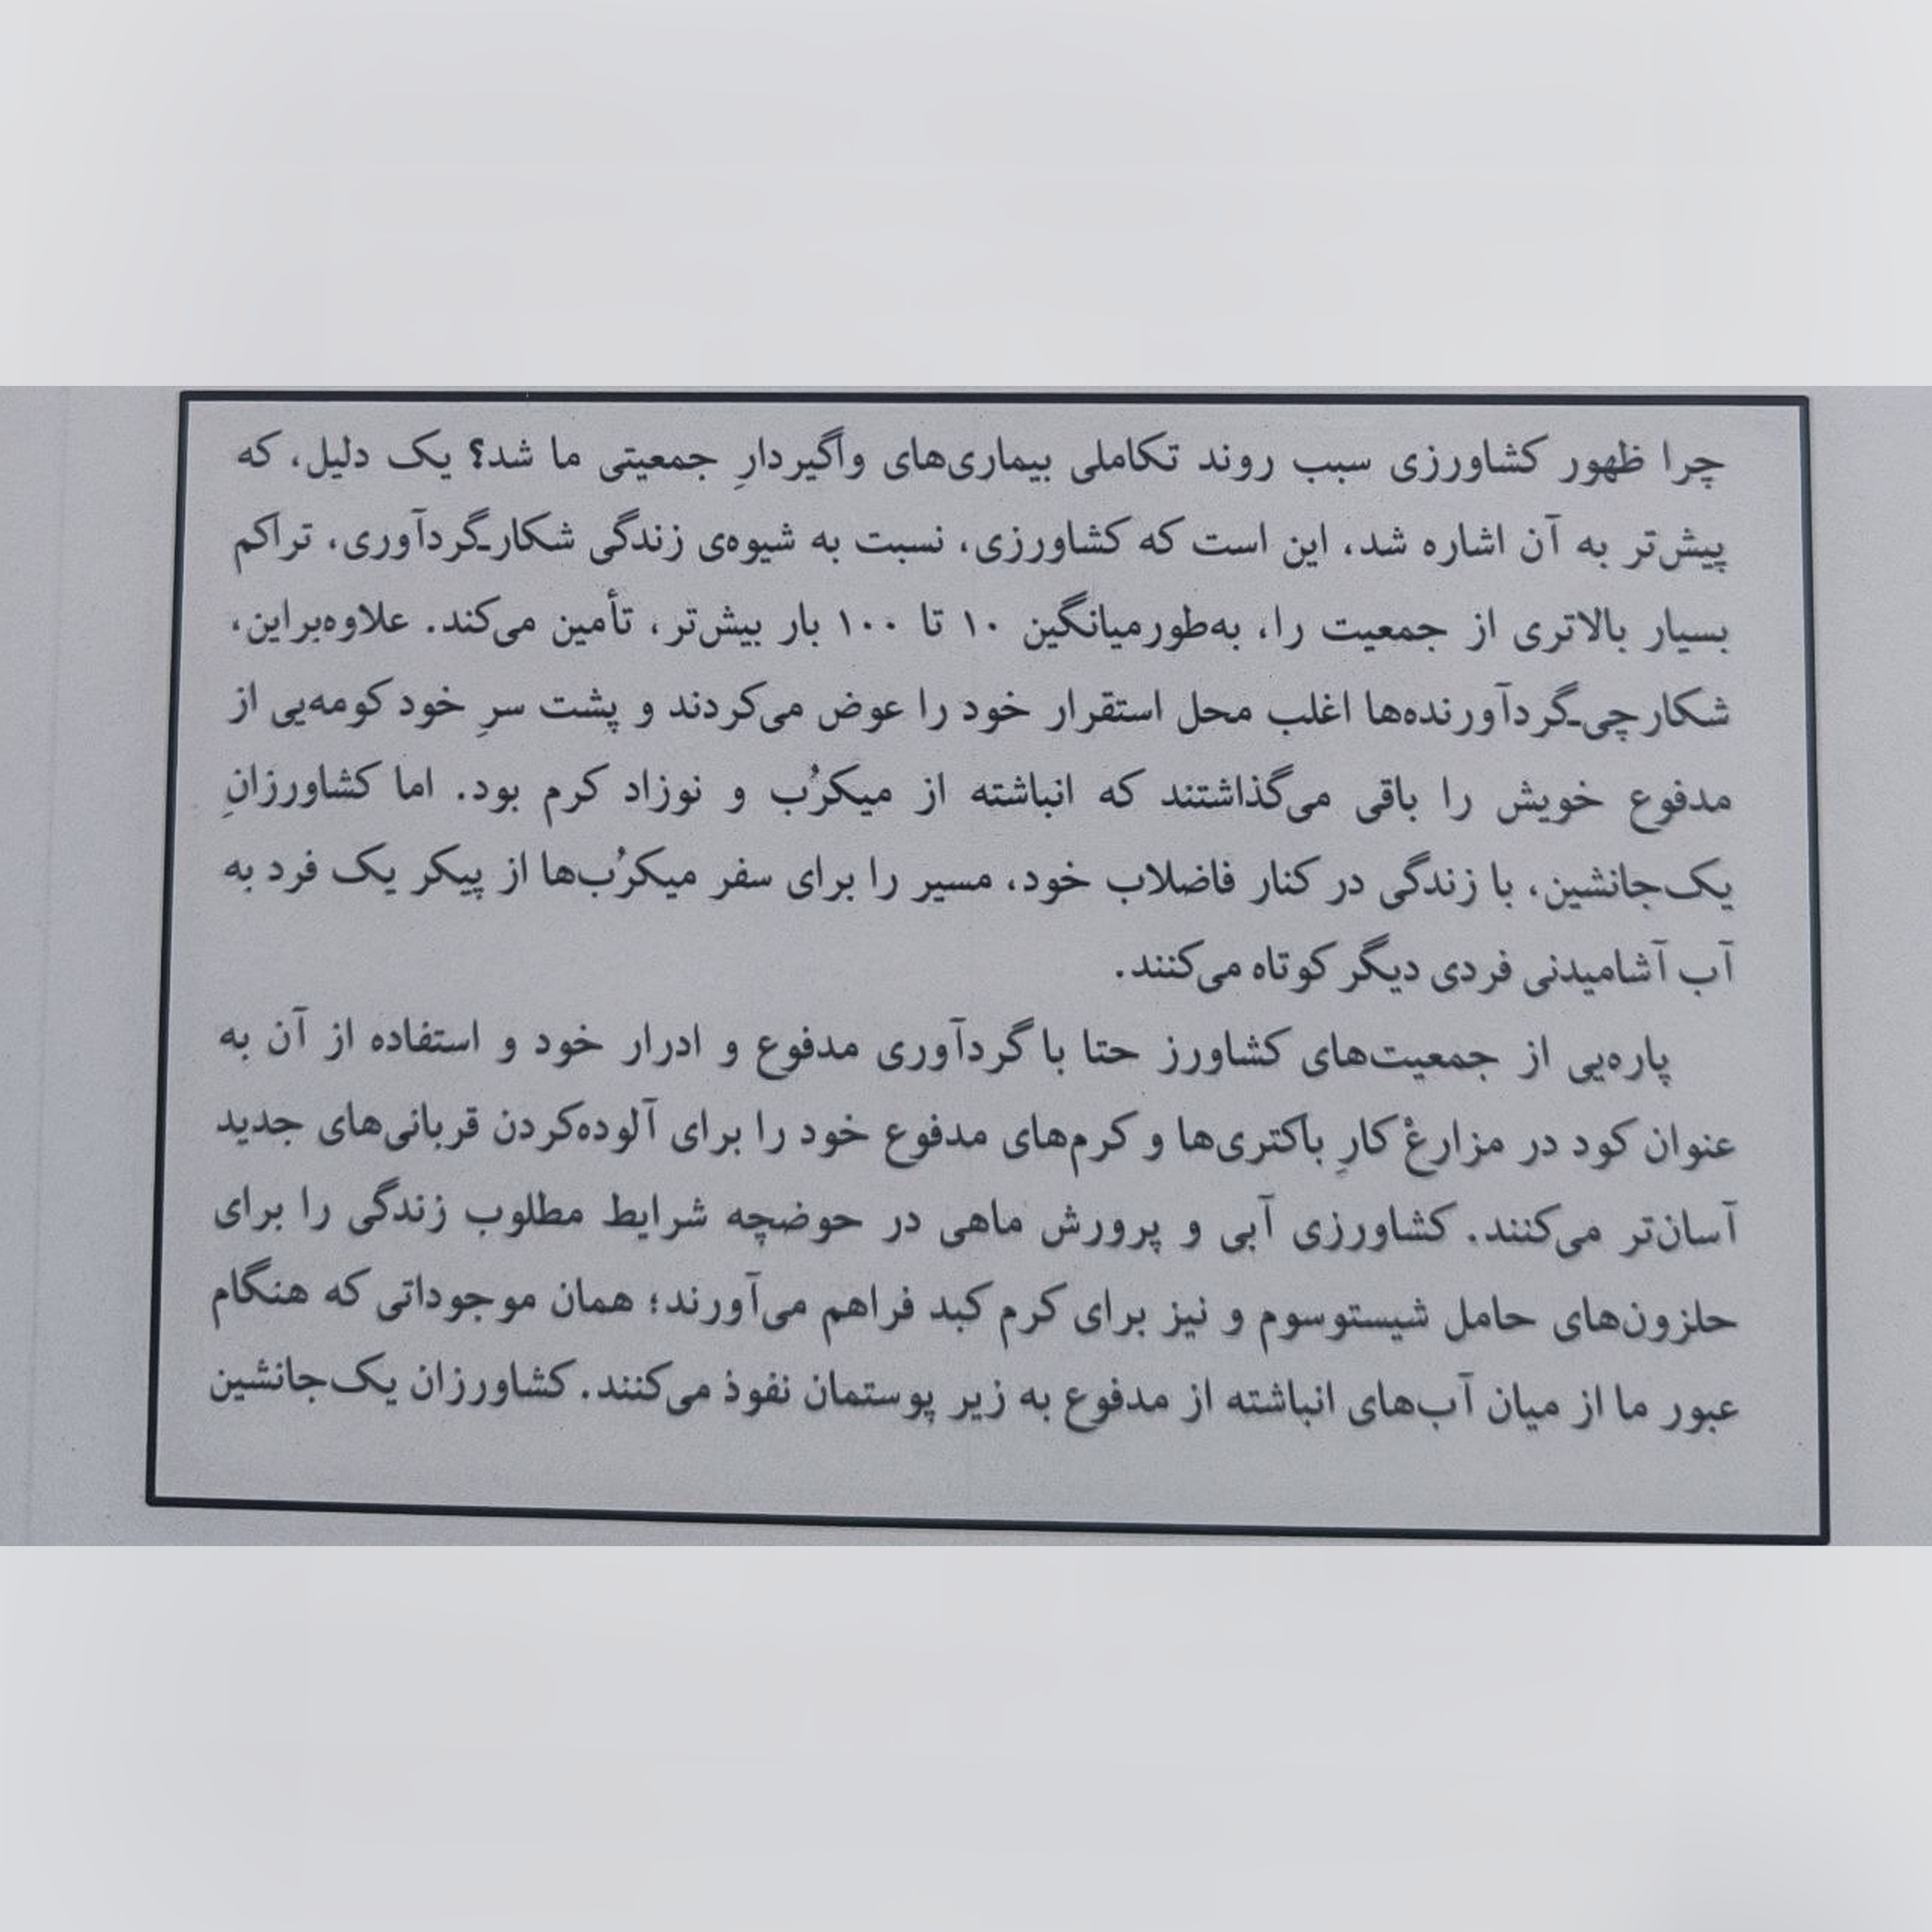 چرا ظهور کشاورزی سبب روند تکاملی بیماری‌های واگیردارِ جمعیتی ما شد؟ یک دلیل، که
پیش‌تر به آن اشاره شد، این است که کشاورزی، نسبت به شیوه‌ی زندگی شکارـگردآوری، تراکم
بسیار بالاتری از جمعیت را، به‌طورمیانگین ۱۰ تا ۱۰۰ بار بیش‌تر، تأمین می‌کند. علاوه‌براین،
شکارچی‌ـگردآورنده‌ها اغلب محل استقرار خود را عوض می‌کردند و پشت سرِ خود کومه‌یی از
مدفوع خویش را باقی می‌گذاشتند که انباشته از میکرُب و نوزاد کرم بود. اما کشاورزانِ
یک‌جانشین، با زندگی در کنار فاضلاب خود، مسیر را برای سفر میکرُب‌ها از پیکر یک فرد به
آب آشامیدنی فردی دیگر کوتاه می‌کنند.
پاره‌یی از جمعیت‌های کشاورز حتا با گردآوری مدفوع و ادرار خود و استفاده از آن به
عنوان کود در مزارعْ کارِ باکتری‌ها و کرم‌های مدفوع خود را برای آلوده‌کردن قربانی‌های جدید
آسان‌تر می‌کنند. کشاورزی آبی و پرورش ماهی در حوضچه شرایط مطلوب زندگی را برای
حلزون‌های حامل شیستوسوم و نیز برای کرم کبد فراهم می‌آورند؛ همان موجوداتی که هنگام
عبور ما از میان آب‌های انباشته از مدفوع به زیر پوستمان نفوذ می‌کنند. کشاورزان یک‌جانشین